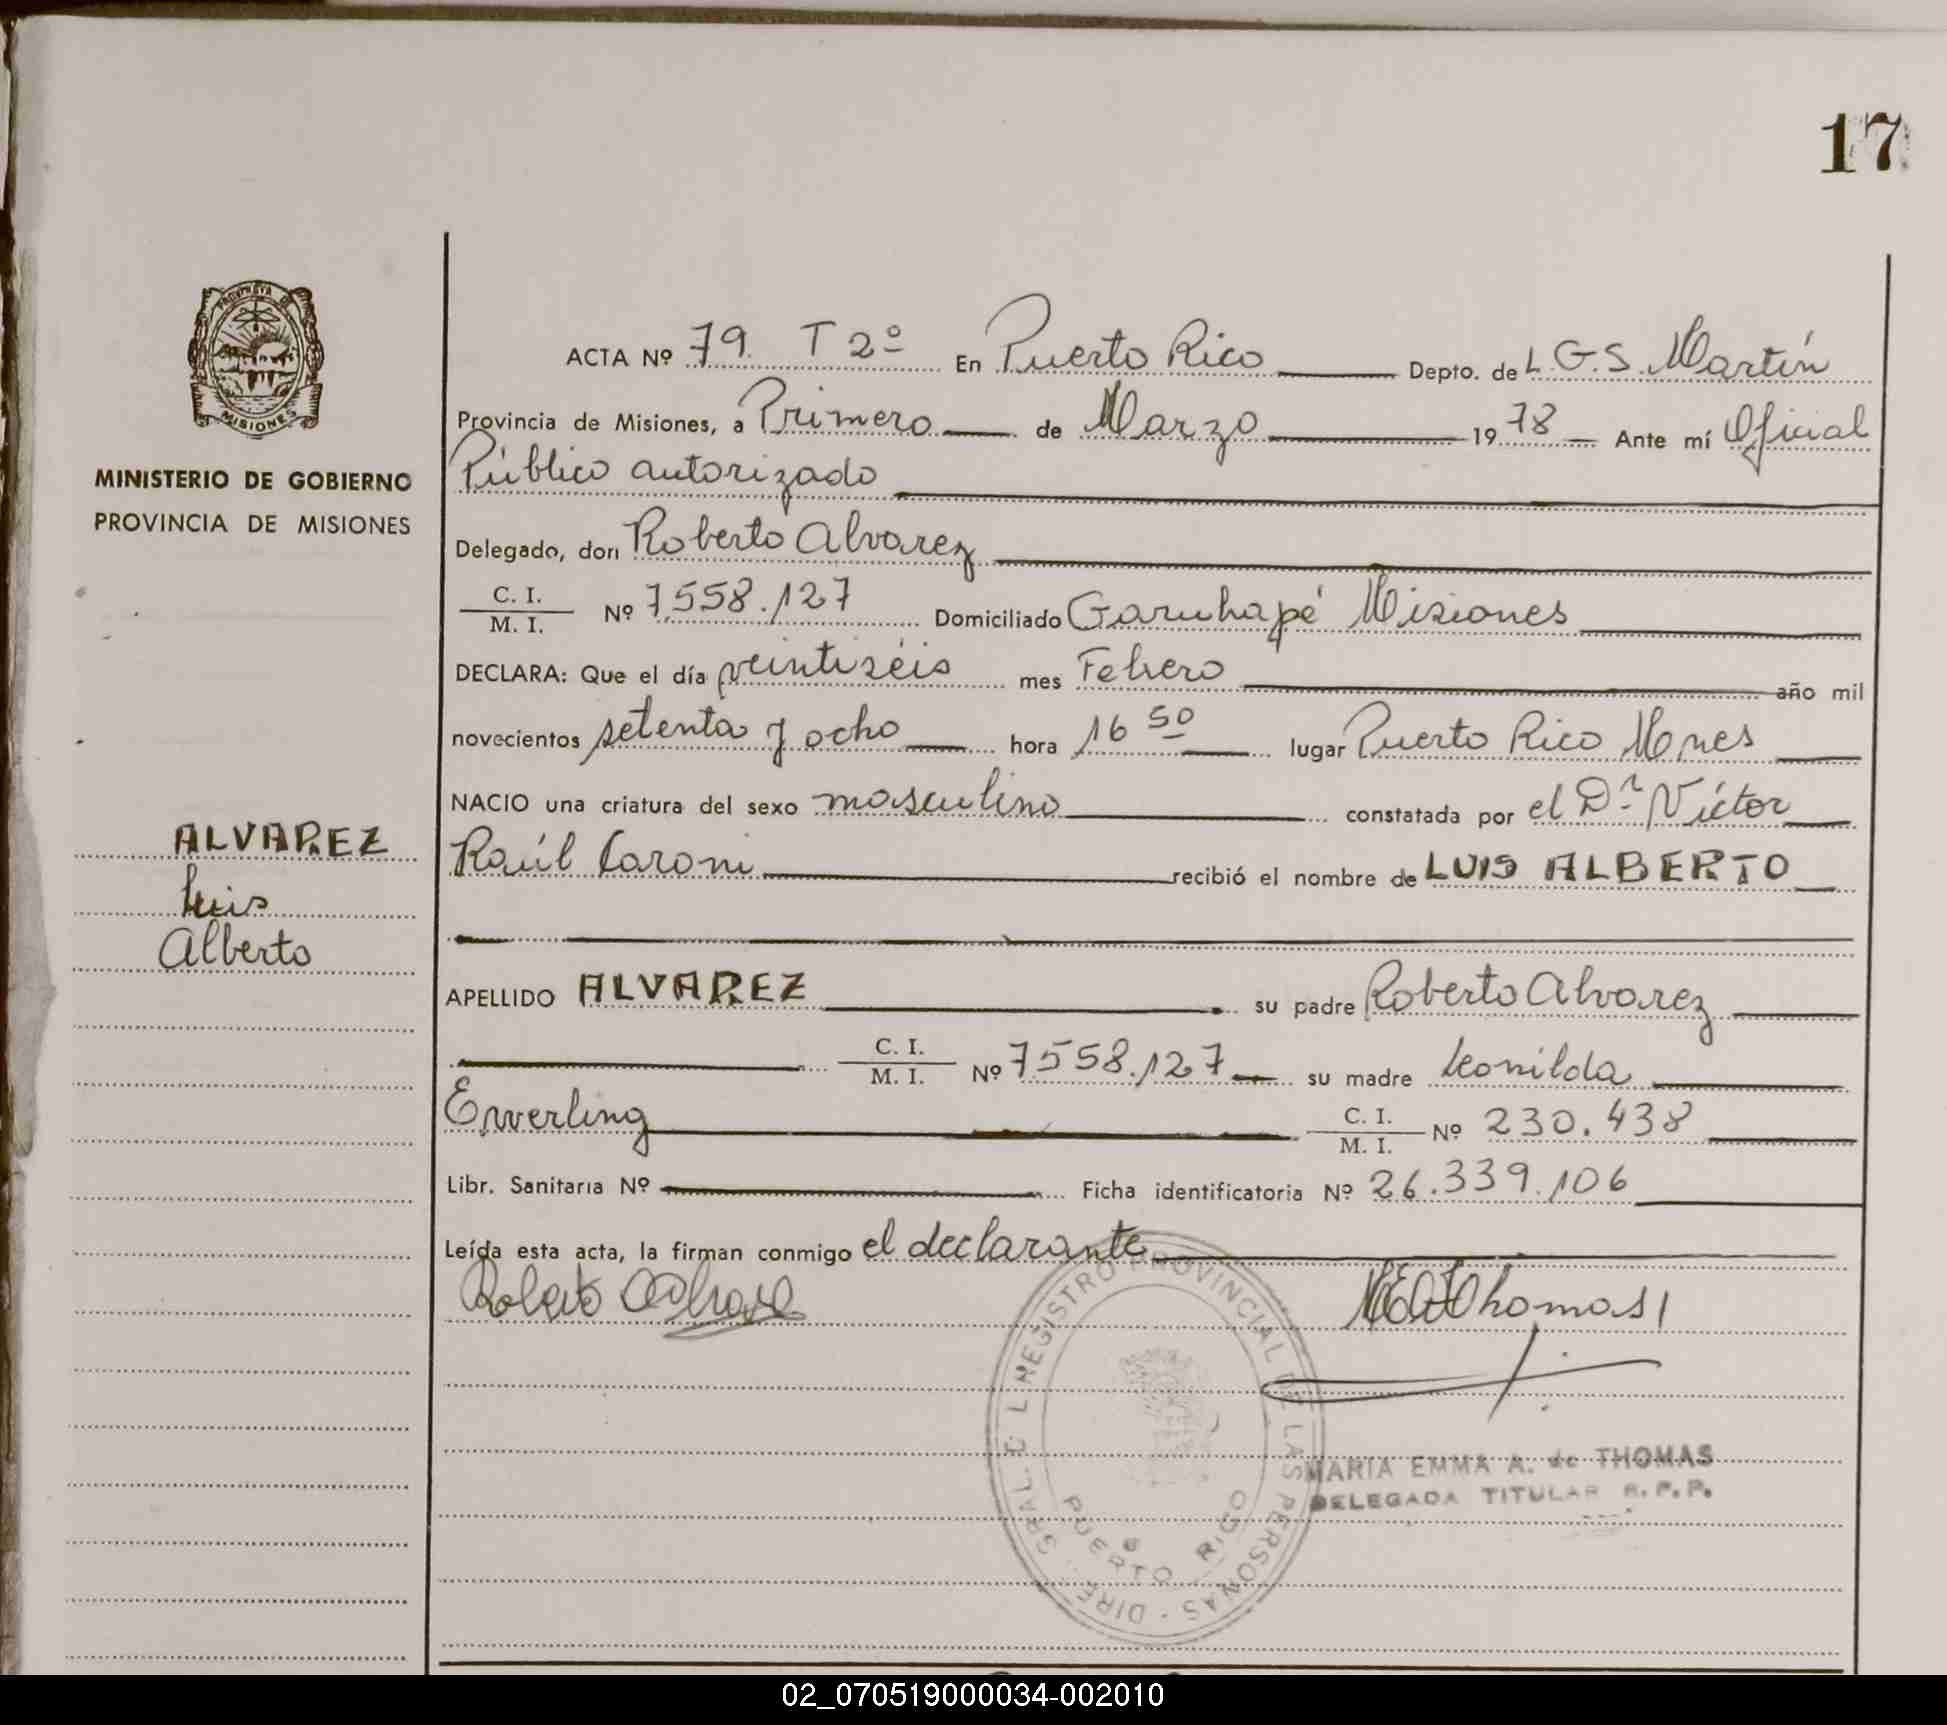 17
PROVINCIA DE
MISIONES
MINISTERIO DE GOBIERNO
PROVINCIA DE MISIONES
ALVAREZ
Luis
Alberto
ACTA Nº 79. T 2º En Puerto Rico Depto. de L.G.S. Martín
Provincia de Misiones, a Primero de Marzo 1978 Ante mí Oficial
Público autorizado
Delegado, don Roberto Alvarez
C. I.
M. I. Nº 7.558.127 Domiciliado Garuhapé Misiones
DECLARA: Que el día veintiséis mes Febrero año mil
novecientos setenta y ocho hora 16 50 lugar Puerto Rico Mnes
NACIO una criatura del sexo masculino constatada por el Dr Víctor
Raúl Caroni recibió el nombre de LUIS ALBERTO
APELLIDO ALVAREZ su padre Roberto Alvarez
C. I.
M. I. Nº 7558.127 su madre Leonilda
Ewerling C. I.
M. I. Nº 230.438
Libr. Sanitaria Nº Ficha identificatoria Nº 26.339.106
Leída esta acta, la firman conmigo el declarante
Roberto Alvarez
REGISTRO PROVINCIAL DE LAS PERSONAS - DIRE. GRAL. C L
PUERTO RICO
6
MARIA EMMA A. de THOMAS
DELEGADA TITULAR R.P.P.
02_070519000034-002010